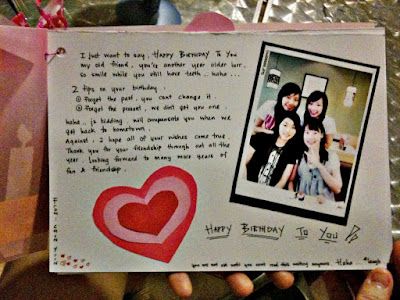 I just want to say, HAPPY BIRTHDAY TO YOU
my old friend, you're another year older lurr..
so smile while you still have teeth.. haha...
2 tips on your birthday:
① forget the past, you cant change it.
② forget the present, we didnt get you one.
haha.. jz kidding, will components you when we
get back to hometown.
Against, I hope all of your wishes come true.
Thank you for your friendship through out all the
year. Looking forward to many more years of
fun & friendship.
HAPPY BIRTHDAY TO YOU
you are not old until you cant read this writing anymore. Haha...